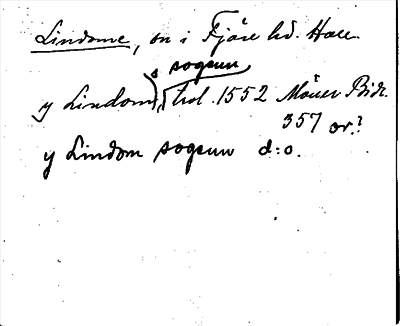 Lindome, sn i Fjäre hd. Hall.
sogenn
y Lindom hd. 1552 Möller Bidr.
357 or.?
y Lindom sogenn d:o.